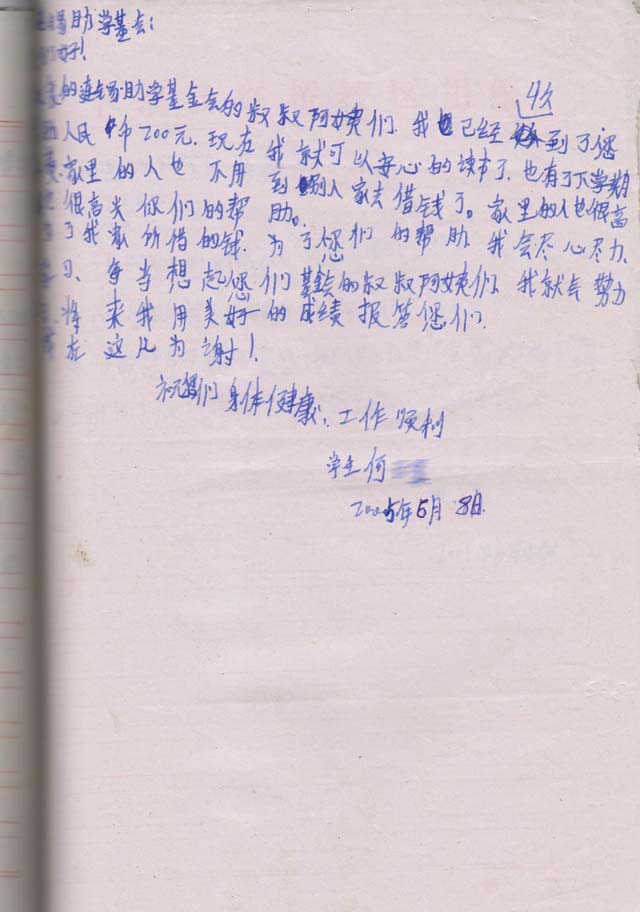 助学基金会:
好!
的 助学基金会的叔叔阿姨们.我已经收到了您
人民币200元.现在我就可以安心的读书了.也有了下学期
家里的人也不用到别人家去借钱了。家里的人也很高
很高兴你们的帮助。
了我家所借的钱.为了您们的帮助.我会尽心尽力.
习、每当想起您们基金会的叔叔阿姨们.我就会努力
将来我用美好的成绩报答您们.
在这儿为谢!
祝您们身体健康、工作顺利
学生何
2005年5月8日.